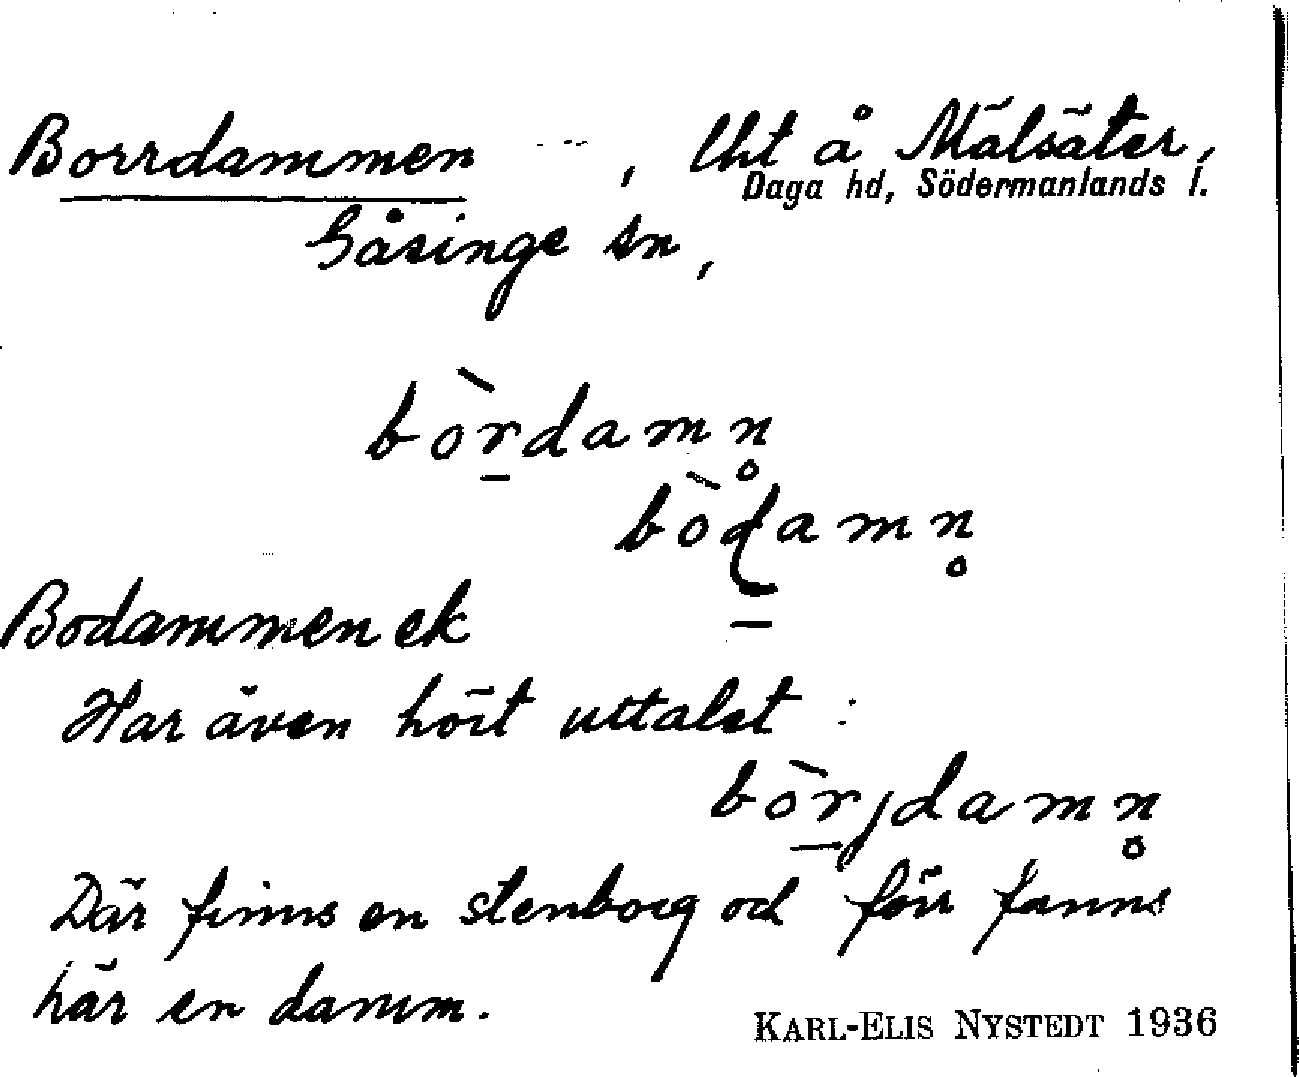 Borrdammen , Uht å Mälsäter,
Daga hd, Södermanlands l.
Gåsinge sn,
bòrdamn̥
bòdamn̥
Bodammen ek
Har även hört uttalet :
bòrjdamn̥
Där finns en stenborg och förr fanns
här en damm.
KARL-ELIS NYSTEDT 1936